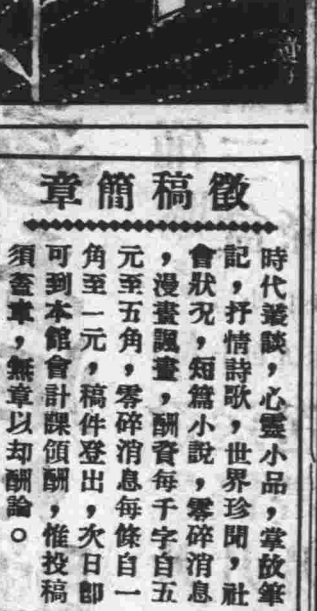 徵稿簡章
時代叢談，心靈小品，掌故筆
記，抒情詩歌，世界珍聞，社
會狀況，短篇小說，零碎消息
，漫畫諷畫，酬資每千字自五
元至五角，零碎消息每條自一
角至一元，稿件登出，次日卽
可到本館會計課領酬，惟投稿
須蓋章，無章以却酬論。